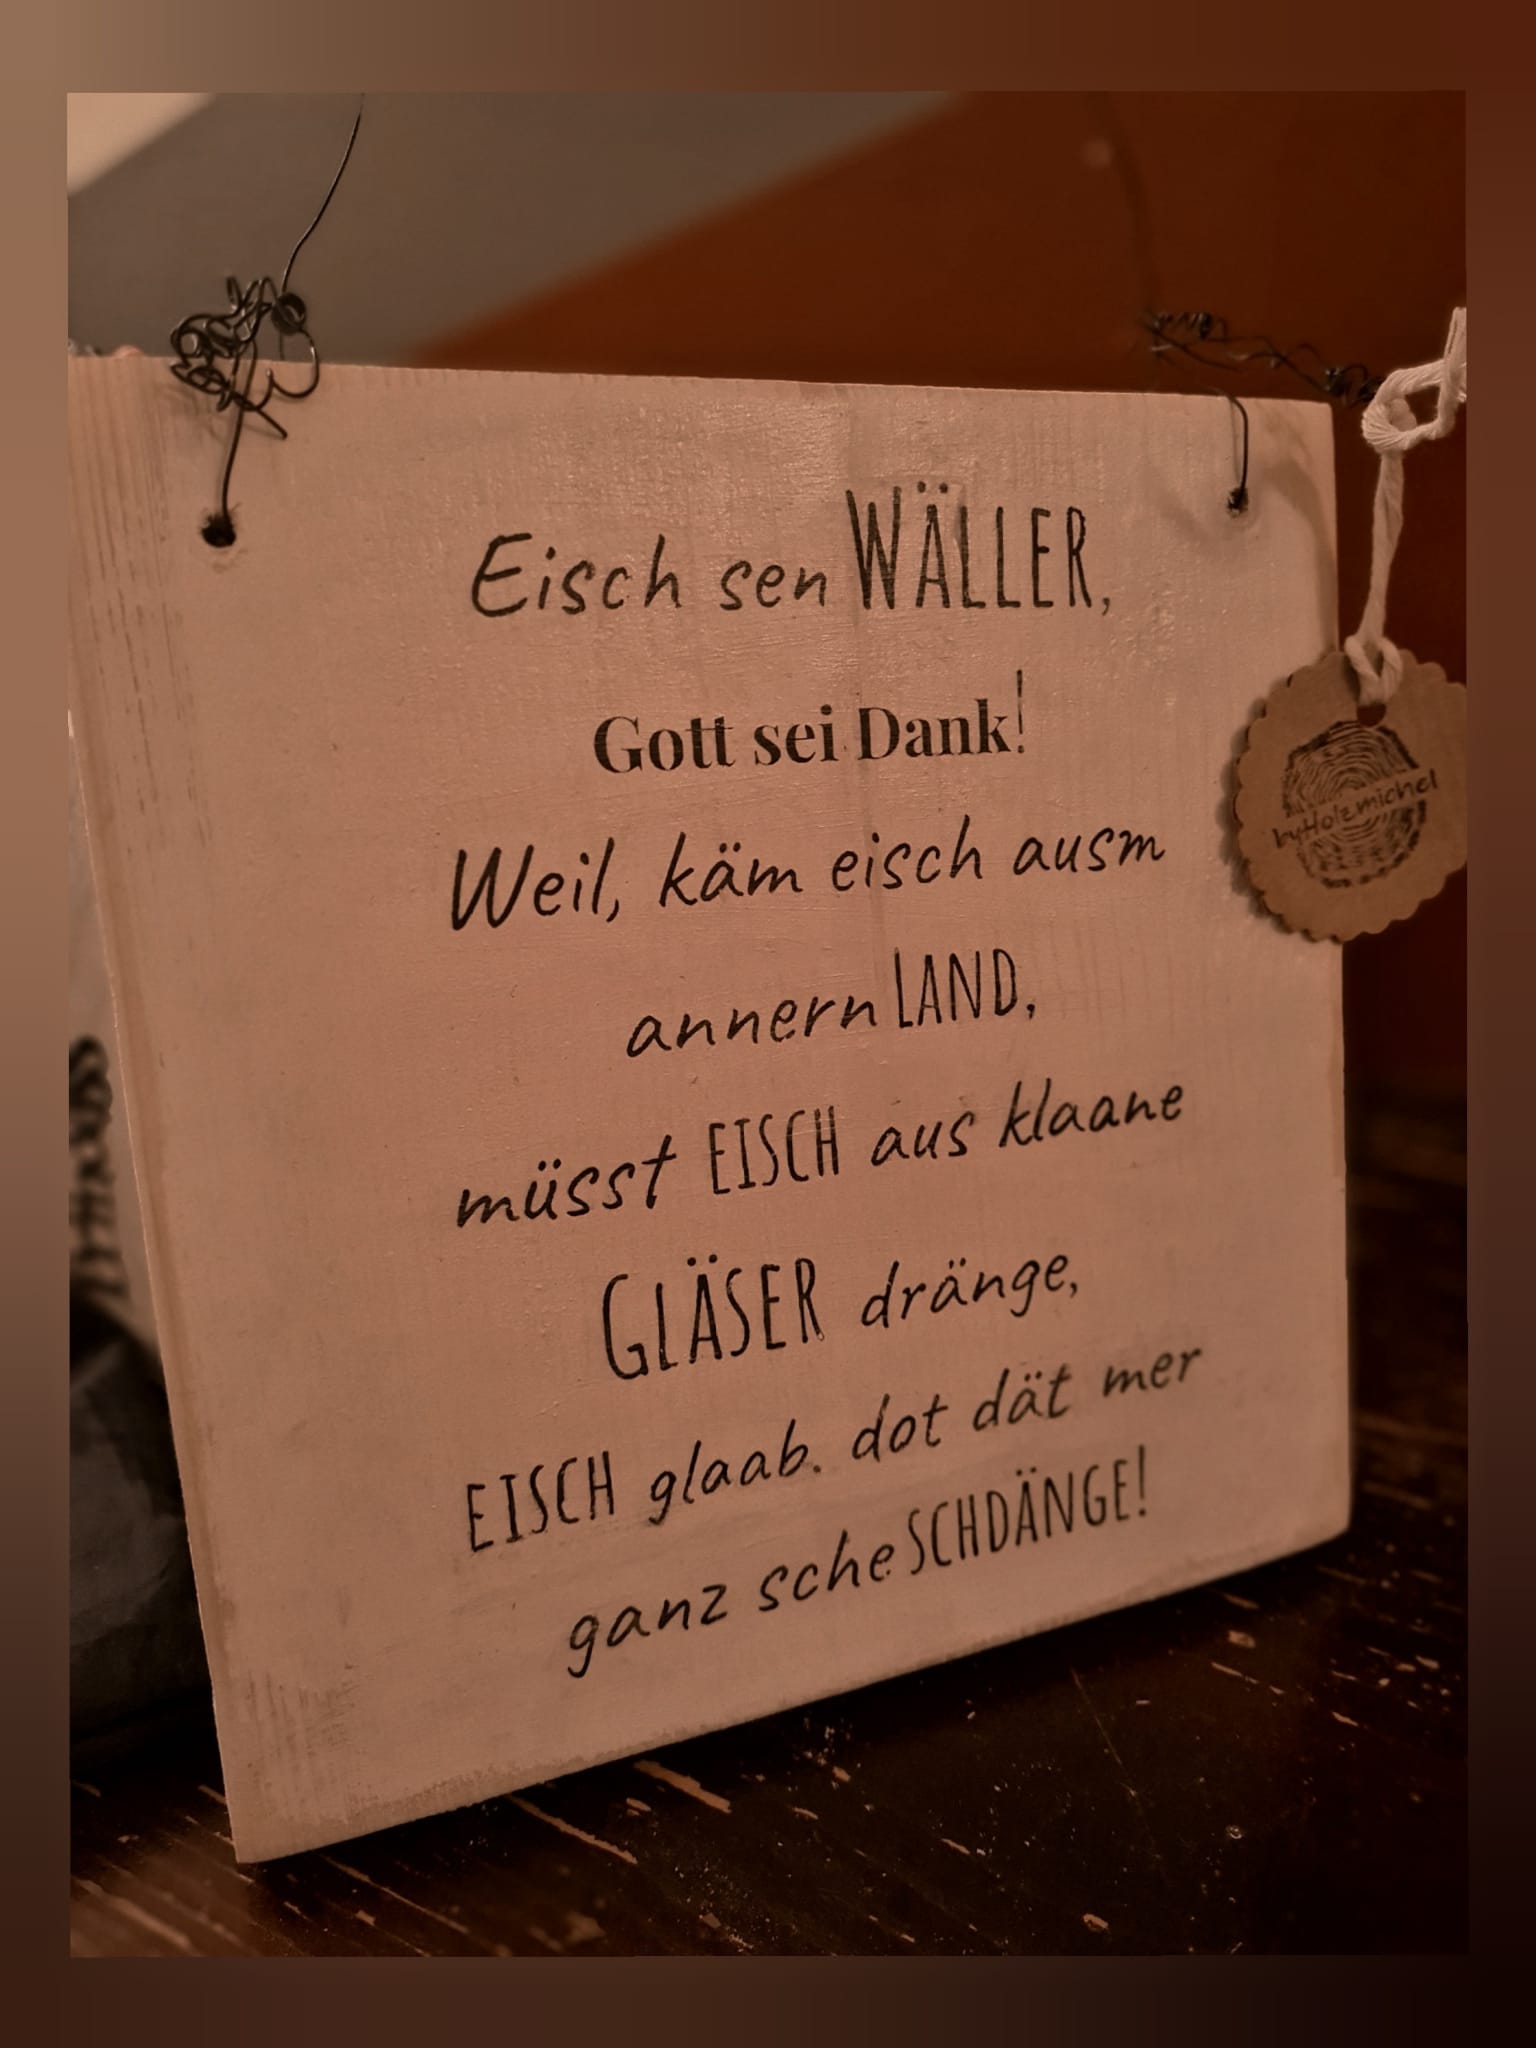 Eisch sen WÄLLER,
Gott sei Dank!
Weil, käm eisch ausm
annern LAND,
müsst EISCH aus klaane
GLÄSER dränge,
EISCH glaab. dot dät mer
ganz sche SCHDÄNGE!
byHolzmichel